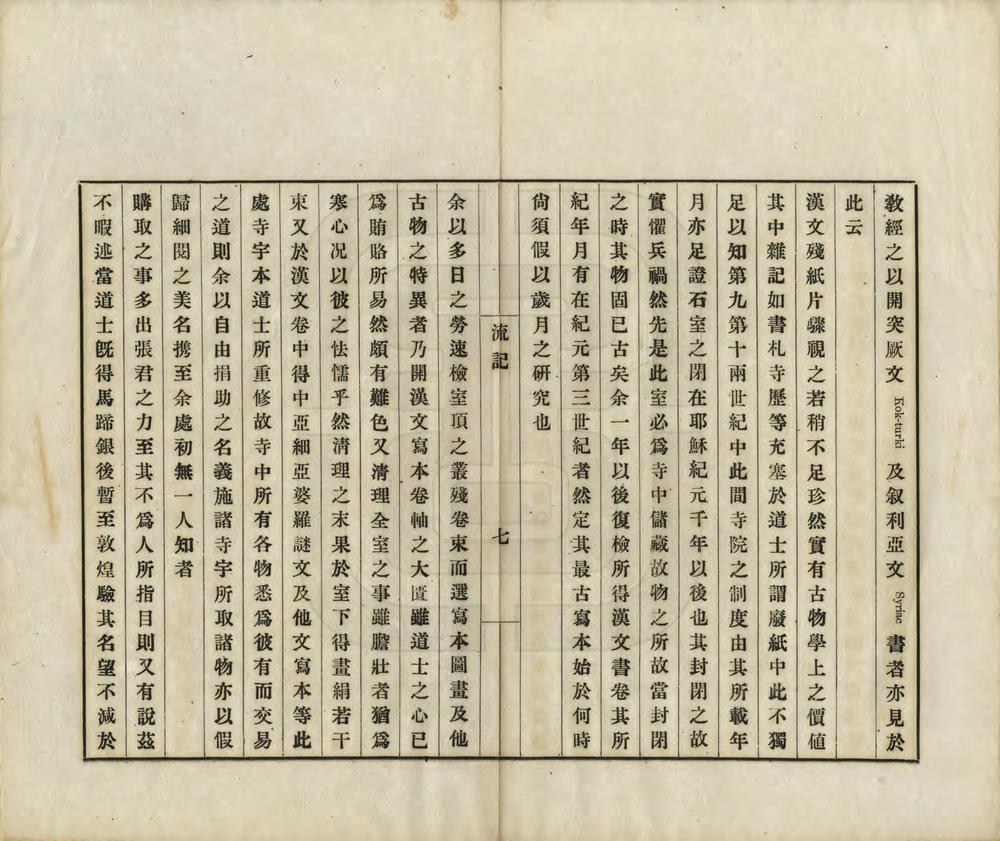 教經之以開突厥文 Kok-turki 及叙利亞文 Syriac 書者亦見於
此云
漢文殘紙片驟視之若稍不足珍然實有古物學上之價値
其中雜記如書札寺歷等充塞於道士所謂廢紙中此不獨
足以知第九第十兩世紀中此間寺院之制度由其所載年
月亦足證石室之閉在耶穌紀元千年以後也其封閉之故
實懼兵禍然先是此室必爲寺中儲藏故物之所故當封閉
之時其物固已古矣余一年以後復檢所得漢文書卷其所
紀年月有在紀元第三世紀者然定其最古寫本始於何時
尙須假以歲月之研究也
流記
七
余以多日之勞速檢室頂之叢殘卷束而選寫本圖畫及他
古物之特異者乃開漢文寫本卷軸之大匱雖道士之心已
爲賄賂所易然頗有難色又淸理全室之事雖膽壯者猶爲
寒心况以彼之怯懦乎然淸理之末果於室下得畫絹若干
束又於漢文卷中得中亞細亞婆羅謎文及他文寫本等此
處寺宇本道士所重修故寺中所有各物悉爲彼有而交易
之道則余以自由捐助之名義施諸寺宇所取諸物亦以假
歸細閱之美名携至余處初無一人知者
購取之事多出張君之力至其不爲人所指目則又有說茲
不暇述當道士旣得馬蹄銀後暫至敦煌驗其名望不減於